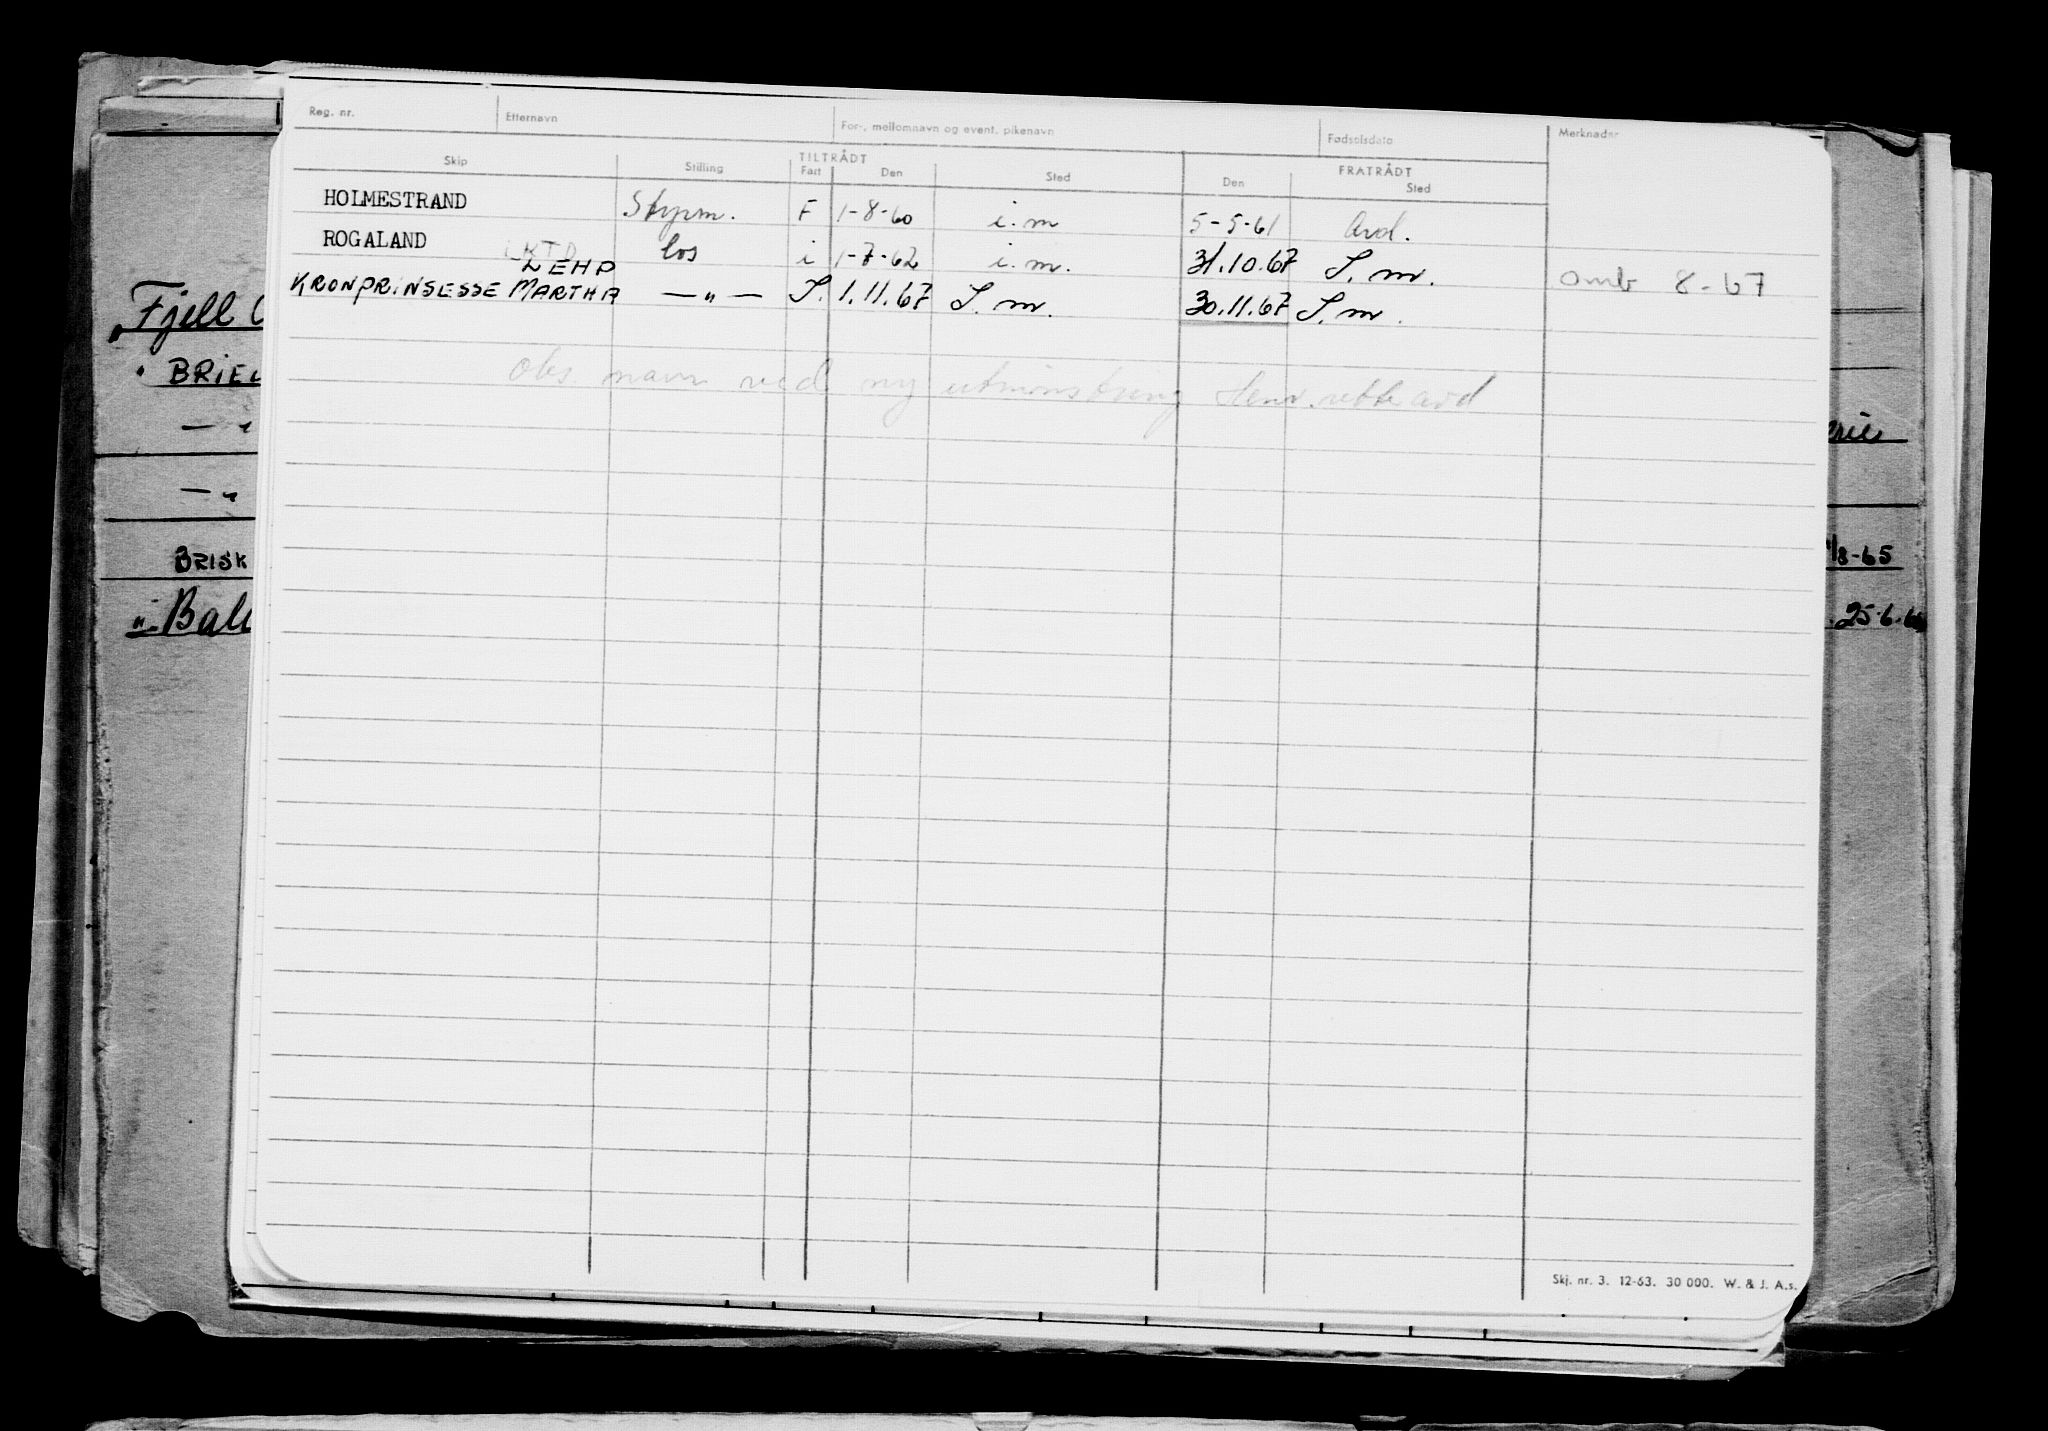 Reg. nr. Etternavn For-, mellomnavn og event. pikenavn Fødselsdato Merknader
Skip Stilling TILTRÅDT Fart Den Sted FRATRÅDT Den Sted
HOLMESTRAND Styrm. F 1-8-60 i.m 5-5-61 Avd.
ROGALAND los i 1-7-62 i.m. 31.10.67 S.m.
LEHP omb 8-67
KRONPRINSESSE MARTHA —„— S. 1.11.67 S.m. 30.11.67 S.m.
Obs. navn ved ny utmønstring
Fjell
BRIE
—„
—„
BRISK /8-65
„ Bal 25-6.6
Skj. nr. 3. 12-63. 30 000. W. & J. A.s.